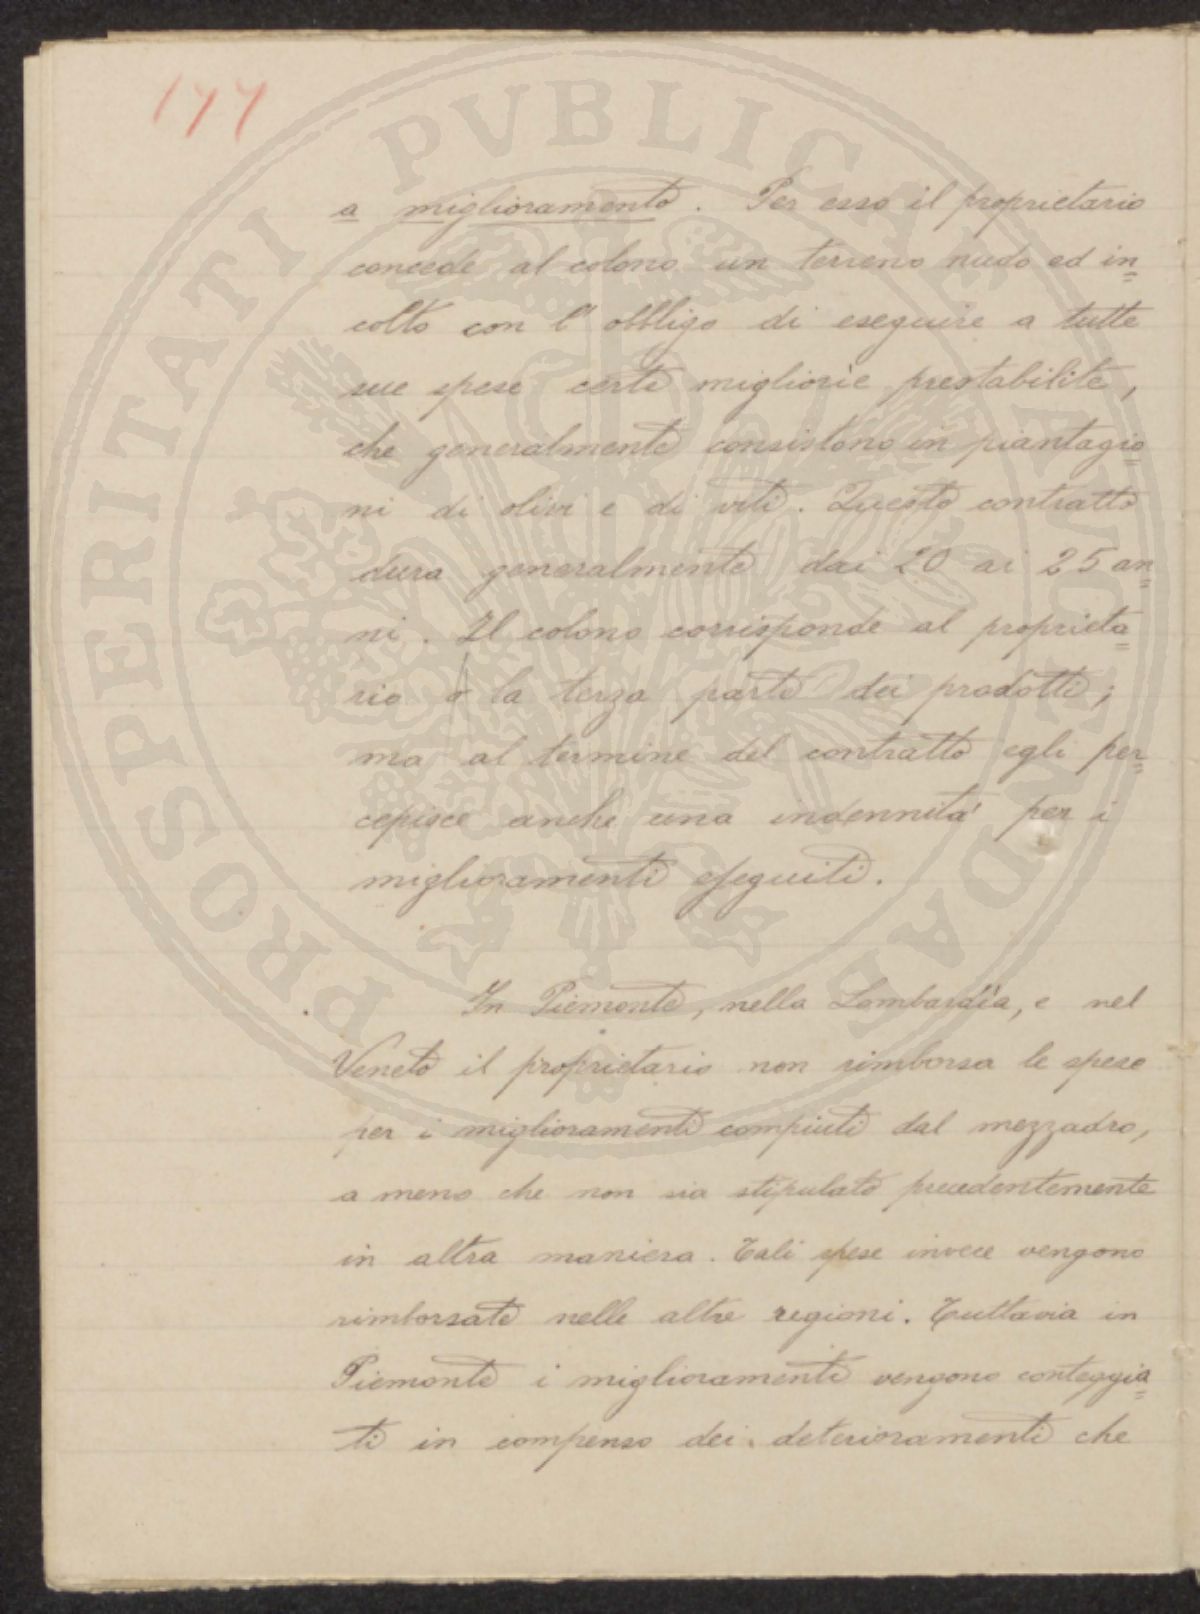 177
a miglioramento. Per esso il proprietario
concede al colono un terreno nudo ed in=
colto con l'obbligo di eseguire a tutte
sue spese certe migliorie prestabilite,
che generalmente consistono in piantagio=
ni di olivi e di viti. Questo contratto
dura generalmente dai 20 ai 25 an=
ni. Il colono corrisponde al proprieta=
rio la terza parte dei prodotti;
ma al termine del contratto egli per=
cepisce anche una indennità per i
miglioramenti eseguiti.
In Piemonte, nella Lombardia, e nel
Veneto il proprietario non rimborsa le spese
per i miglioramenti compiuti dal mezzadro,
a meno che non sia stipulato precedentemente
in altra maniera. Tali spese invece vengono
rimborsate nelle altre regioni. Tuttavia in
Piemonte i miglioramenti vengono conteggia=
ti in compenso dei deterioramenti che
PROSPERITATI PVBLICAE AVGENDAE